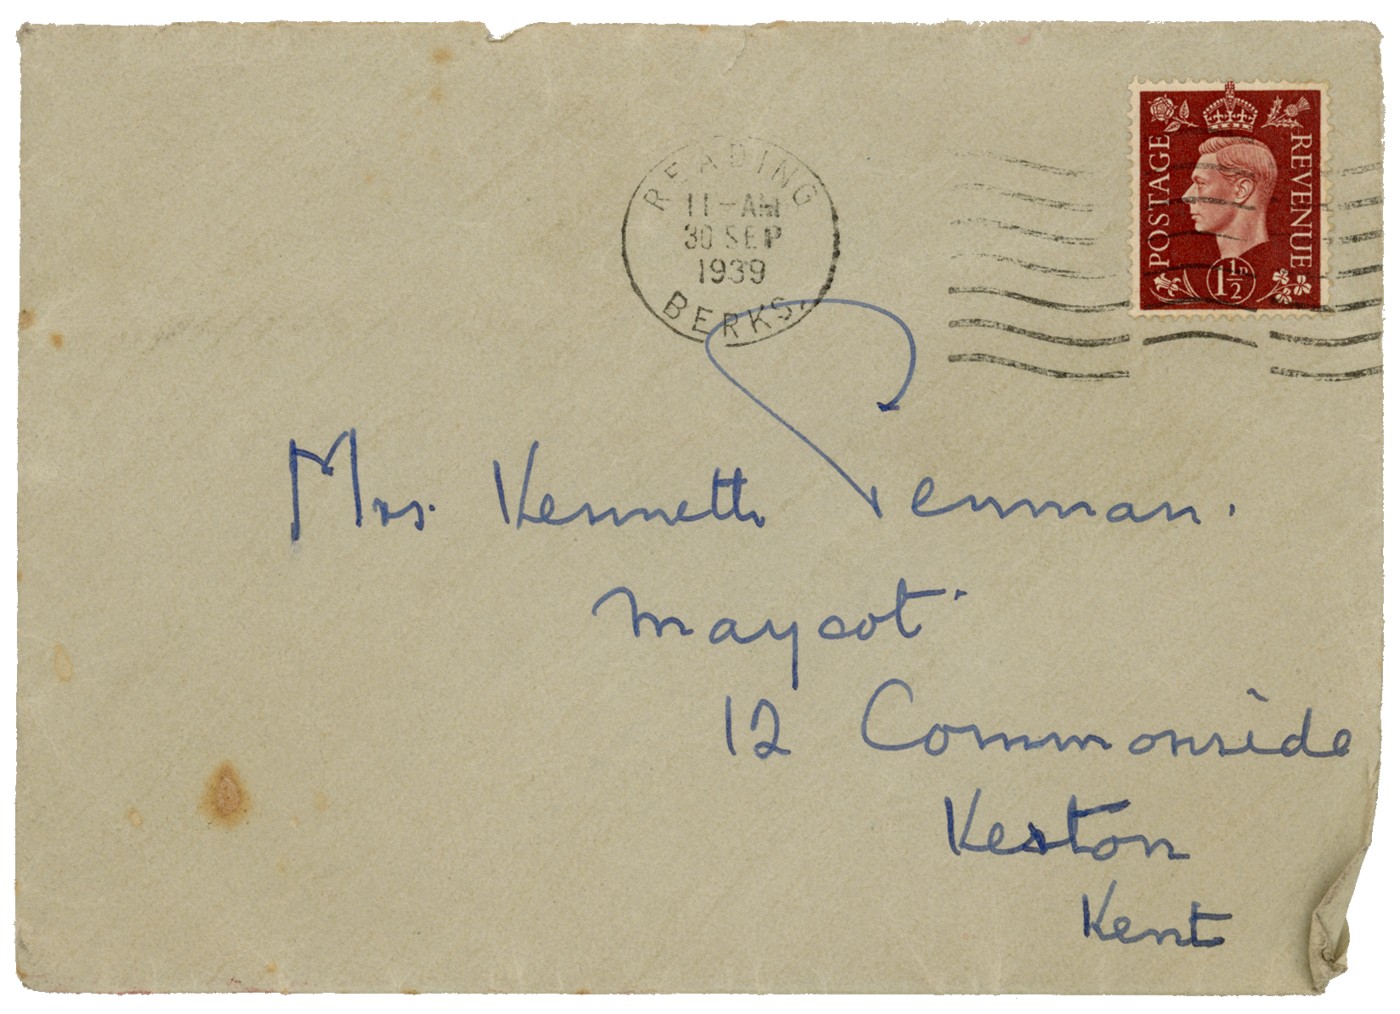 READING
11-AM
30 SEP
1939
BERKS.
POSTAGE
REVENUE
1½D
Mrs. Kenneth Penman.
Maycot.
12 Commonside
Keston
Kent